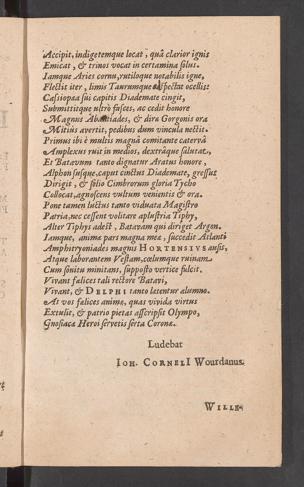 Accipit, indigetemque locat, quà clarior ignis
Emicat, & trinos vocat in certamina solus.
Iamque Aries cornu, rutiloque notabilis igne,
Flectit iter, limis Taurumque aspectat ocellis:
Cassiopæa sui capitis Diademate cingit,
Submittitque ultrò fasces, ac cedit honore
Magnus Abantiades, & dira Gorgonis ora
Mitius avertit, pedibus dum vincula nectit.
Primus ibi è multis magnâ comitante catervâ
Amplexus ruit in medios, dextrâque salutat,
Et Batavum tanto dignatur Aratus honore,
Alphonsusque, caput cinctus Diademate, gressus
Dirigit, & solio Cimbrorum gloria Tycho
Collocat, agnoscens vultum venientis & ora.
Pone tamen luctus tanto viduata Magistro
Patria, nec cessent volitare aplustria Tiphy,
Alter Tiphys adest, Batavam qui diriget Argon.
Iamque, animæ pars magna meæ, succedit Atlanti
Amphitryoniades magnis HORTENSIVS ausis,
Atque laborantem Vestam, cœlumque ruinam
Cum sonitu minitans, supposto vertice fulcit.
Vivant felices tali rectore Batavi,
Vivant, & DELPHI tanto lætentur alumno.
At vos felices animæ, quas vivida virtus
Extulit, & patrio pietas asscripsit Olympo,
Gnosiacæ Heroi servetis serta Coronæ.
Ludebat
IOH. CORNELI Wourdanus.
WILLE-